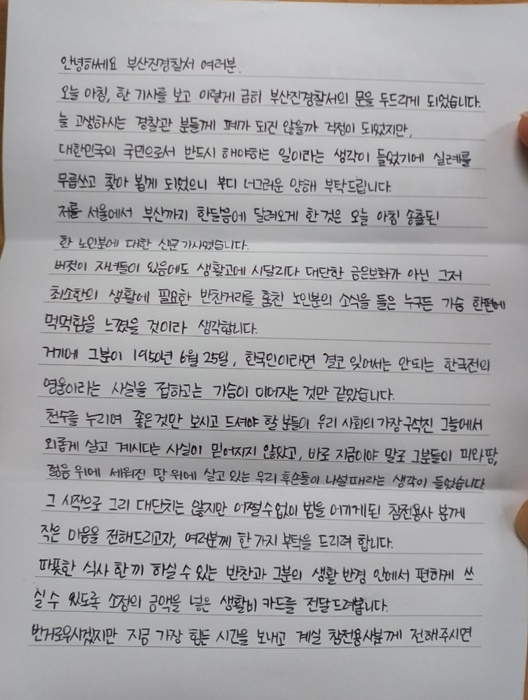 안녕하세요 부산진경찰서 여러분.
오늘 아침, 한 기사를 보고 이렇게 급히 부산진경찰서의 문을 두드리게 되었습니다.
늘 고생하시는 경찰관 분들께 폐가 되진 않을까 걱정이 되었지만,
대한민국의 국민으로서 반드시 해야하는 일이라는 생각이 들었기에 실례를
무릅쓰고 찾아 뵙게 되었으니 부디 너그러운 양해 부탁드립니다.
저를 서울에서 부산까지 한달음에 달려오게 한 것은 오늘 아침 송출된
한 노인분에 대한 신문 기사였습니다.
버젓이 자녀들이 있음에도 생활고에 시달리다 대단한 금은보화가 아닌 그저
최소한의 생활에 필요한 반찬거리를 훔친 노인분의 소식을 들은 누구든 가슴 한편에
먹먹함을 느꼈을 것이라 생각합니다.
거기에 그분이 1950년 6월 25일, 한국인이라면 결코 잊어서는 안되는 한국전의
영웅이라는 사실을 접하고는 가슴이 미어지는 것만 같았습니다.
천수를 누리며 좋은것만 보시고 드셔야 할 분들이 우리 사회의 가장 구석진 그늘에서
외롭게 살고 계시다는 사실이 믿어지지 않았고, 바로 지금이야 말로 그분들이 피와 땀,
젊음 위에 세워진 땅 위에 살고 있는 우리 후손들이 나설 때라는 생각이 들었습니다
그 시작으로 그리 대단치는 않지만 어쩔수없이 법을 어기게 된 참전용사 분께
작은 마음을 전해드리고자, 여러분께 한 가지 부탁을 드리려 합니다.
따뜻한 식사 한 끼 하실 수 있는 반찬과 그분의 생활 반경 안에서 편하게 쓰
실 수 있도록 소정의 금액을 넣은 생활비 카드를 전달드려봅니다.
번거로우시겠지만 지금 가장 힘든 시간을 보내고 계실 참전용사분께 전해주시면